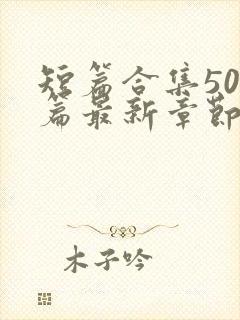 短篇合集50
篇最新章节
木子吟